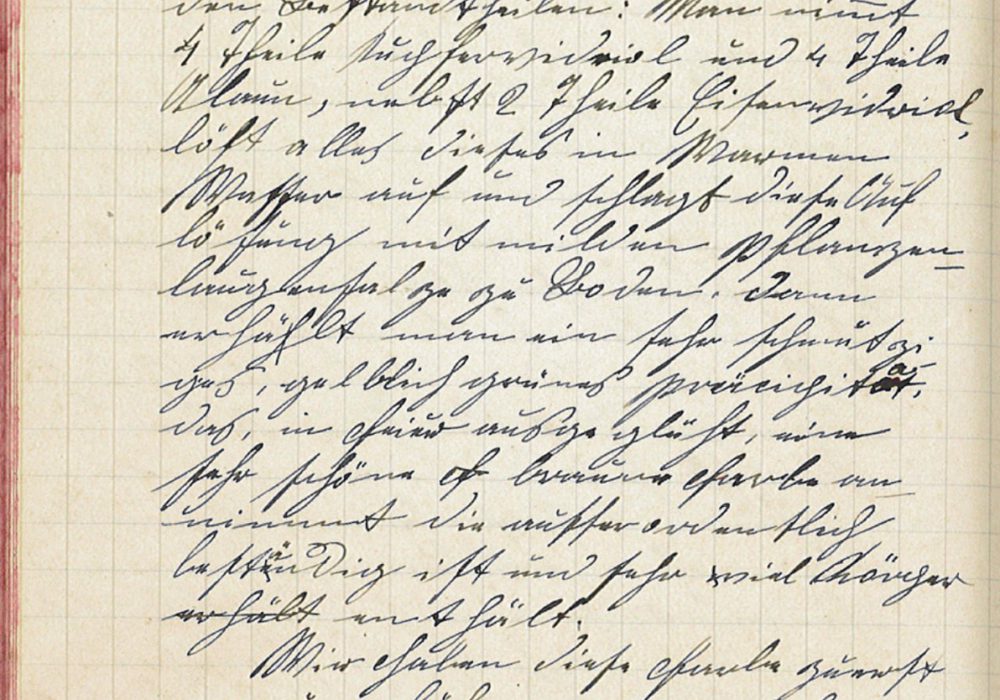 den Bestandtheilen: Man nimt
4 Theile Kuphervidriol und 4 Theile
Alaun, nebst 2 Theile Eisenvidriol,
löst alles dieses in Warmen
Wasser auf und schlagt diese Auf
lösung mit milden Pflanzen
laugensalze zu Boden. Dann
erhählt man ein sehr schmutzi
ges, gelblich grünes Präcipitat,
das, in Feuer ausgeglüht, eine
sehr schöne braune Farbe an
nimmt die ausserordentlich
beständig ist und sehr viel Körper
erhält enthält.
Wir haben diese Farbe zuerst